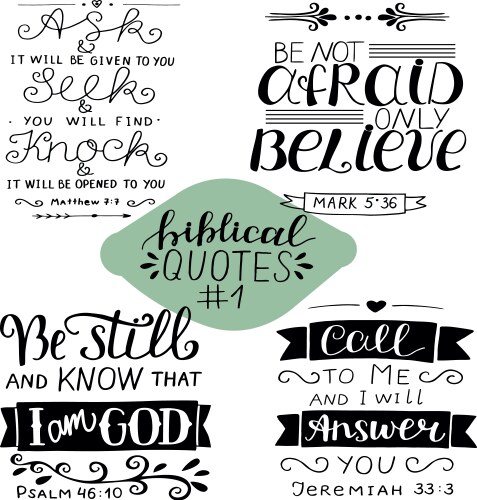 Ask
&
IT WILL BE GIVEN TO YOU
Seek
&
· YOU WILL FIND ·
Knock
&
IT WILL BE OPENED TO YOU
Matthew 7:7
BE NOT
AFRAID
ONLY
BELIEVE
MARK 5·36
biblical
QUOTES
#1
Be still
AND KNOW THAT
I am GOD
PSALM 46:10
Call
TO ME
AND I WILL
Answer
YOU
JEREMIAH 33:3